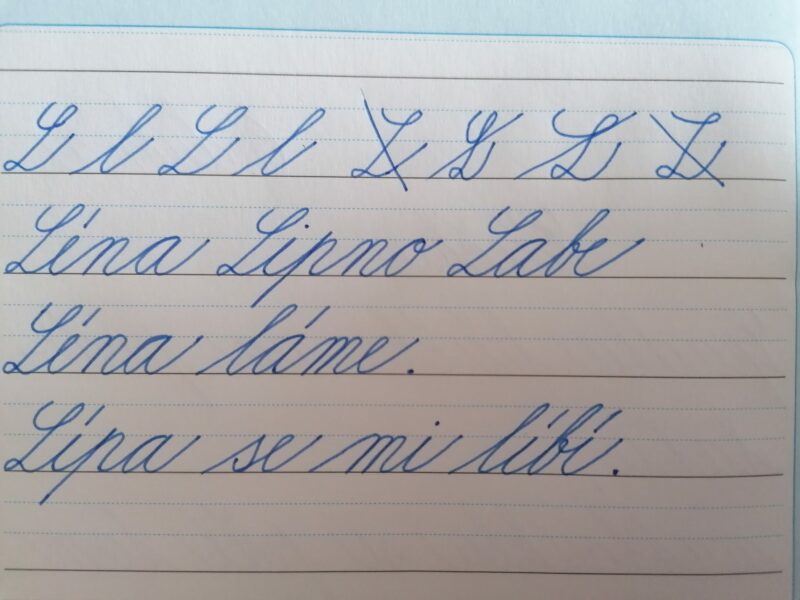 L l L l L L L L
Léna Lipno Labe
Léna láme.
Lípa se mi líbí.